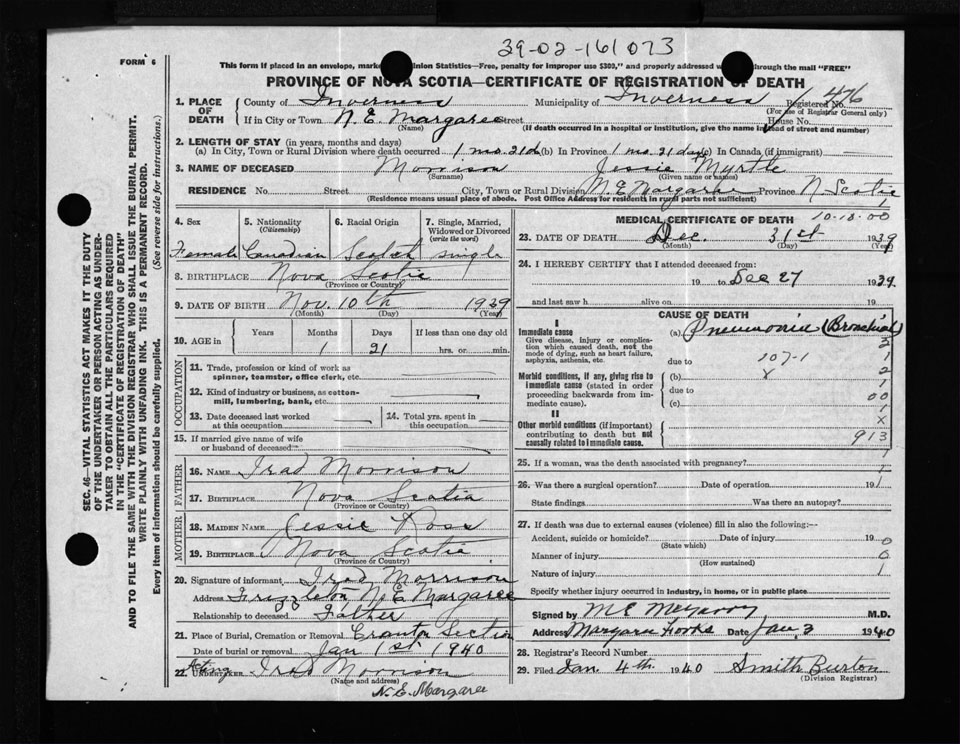 39-02-161073
FORM 6
This form if placed in an envelope, marked Dominion Statistics—Free, penalty for improper use $300," and properly addressed will be through the mail "FREE"
PROVINCE OF NOVA SCOTIA—CERTIFICATE OF REGISTRATION OF DEATH
1. PLACE OF DEATH County of Inverness Municipality of Inverness Registered No. 476
(For use of Registrar General only)
If in City or Town N.E. Margaree Street House No.
(Name) (If death occurred in a hospital or institution, give the name instead of street and number)
2. LENGTH OF STAY (in years, months and days)
(a) In City, Town or Rural Division where death occurred 1 mo. 21 d (b) In Province 1 mo. 21 days (c) In Canada (if immigrant)
3. NAME OF DECEASED Morrison Jessie Myrtle
(Surname) (Given name or names)
RESIDENCE No. Street City, Town or Rural Division N.E Margaree Province N Scotia
(Residence means usual place of abode. Post Office Address for residents in rural parts not sufficient)
4. Sex 5. Nationality (Citizenship) 6. Racial Origin 7. Single, Married, Widowed or Divorced (write the word)
Female Canadian Scotch single
8. BIRTHPLACE Nova Scotia
(Province or Country)
9. DATE OF BIRTH Nov. 10th 1939
(Month) (Day) (Year)
10. AGE in Years Months Days If less than one day old
1 21 hrs. or min.
OCCUPATION
11. Trade, profession or kind of work as spinner, teamster, office clerk, etc.
12. Kind of industry or business, as cotton-mill, lumbering, bank, etc.
13. Date deceased last worked at this occupation
14. Total yrs. spent in this occupation
15. If married give name of wife or husband of deceased
FATHER
16. NAME Irad Morrison
17. BIRTHPLACE Nova Scotia
(Province or Country)
MOTHER
18. MAIDEN NAME Jessie Ross
19. BIRTHPLACE Nova Scotia
(Province or Country)
20. Signature of informant Irad Morrison
Address Frizzleton N.E. Margaree
Relationship to deceased Father
21. Place of Burial, Cremation or Removal Section
Date of burial or removal Jan 1st 1940
22. Acting UNDERTAKER Irad Morrison
(Name and address)
N.E. Margaree
MEDICAL CERTIFICATE OF DEATH
10-18-00
23. DATE OF DEATH Dec. 31st 1939
(Month) (Day) (Year)
24. I HEREBY CERTIFY that I attended deceased from:
19 to Dec 27 1939.
and last saw h alive on 19
CAUSE OF DEATH
I
Immediate cause (a) Pneumonia (Bronchial)
Give disease, injury or complication which caused death, not the mode of dying, such as heart failure, asphyxia, asthenia, etc.
due to 107-1
Morbid conditions, if any, giving rise to immediate cause (stated in order proceeding backwards from immediate cause).
(b) X
due to
(c)
II
Other morbid conditions (if important) contributing to death but not causally related to immediate cause.
913
25. If a woman, was the death associated with pregnancy?
26. Was there a surgical operation? Date of operation 19
State findings Was there an autopsy?
27. If death was due to external causes (violence) fill in also the following:—
Accident, suicide or homicide? Date of injury 19
(State which)
Manner of injury
(How sustained)
Nature of injury
Specify whether injury occurred in industry, in home, or in public place
Signed by M.D.
Address Margaree Forks Date Jan. 3 1940
28. Registrar's Record Number
29. Filed Jan. 4th. 1940 Smith Burton
(Division Registrar)
SEC. 46—VITAL STATISTICS ACT MAKES IT THE DUTY
OF THE UNDERTAKER OR PERSON ACTING AS UNDER-
TAKER TO OBTAIN ALL THE PARTICULARS REQUIRED
IN THE "CERTIFICATE OF REGISTRATION OF DEATH"
AND TO FILE THE SAME WITH THE DIVISION REGISTRAR WHO SHALL ISSUE THE BURIAL PERMIT.
WRITE PLAINLY WITH UNFADING INK. THIS IS A PERMANENT RECORD.
Every item of information should be carefully supplied. (See reverse side for instructions.)